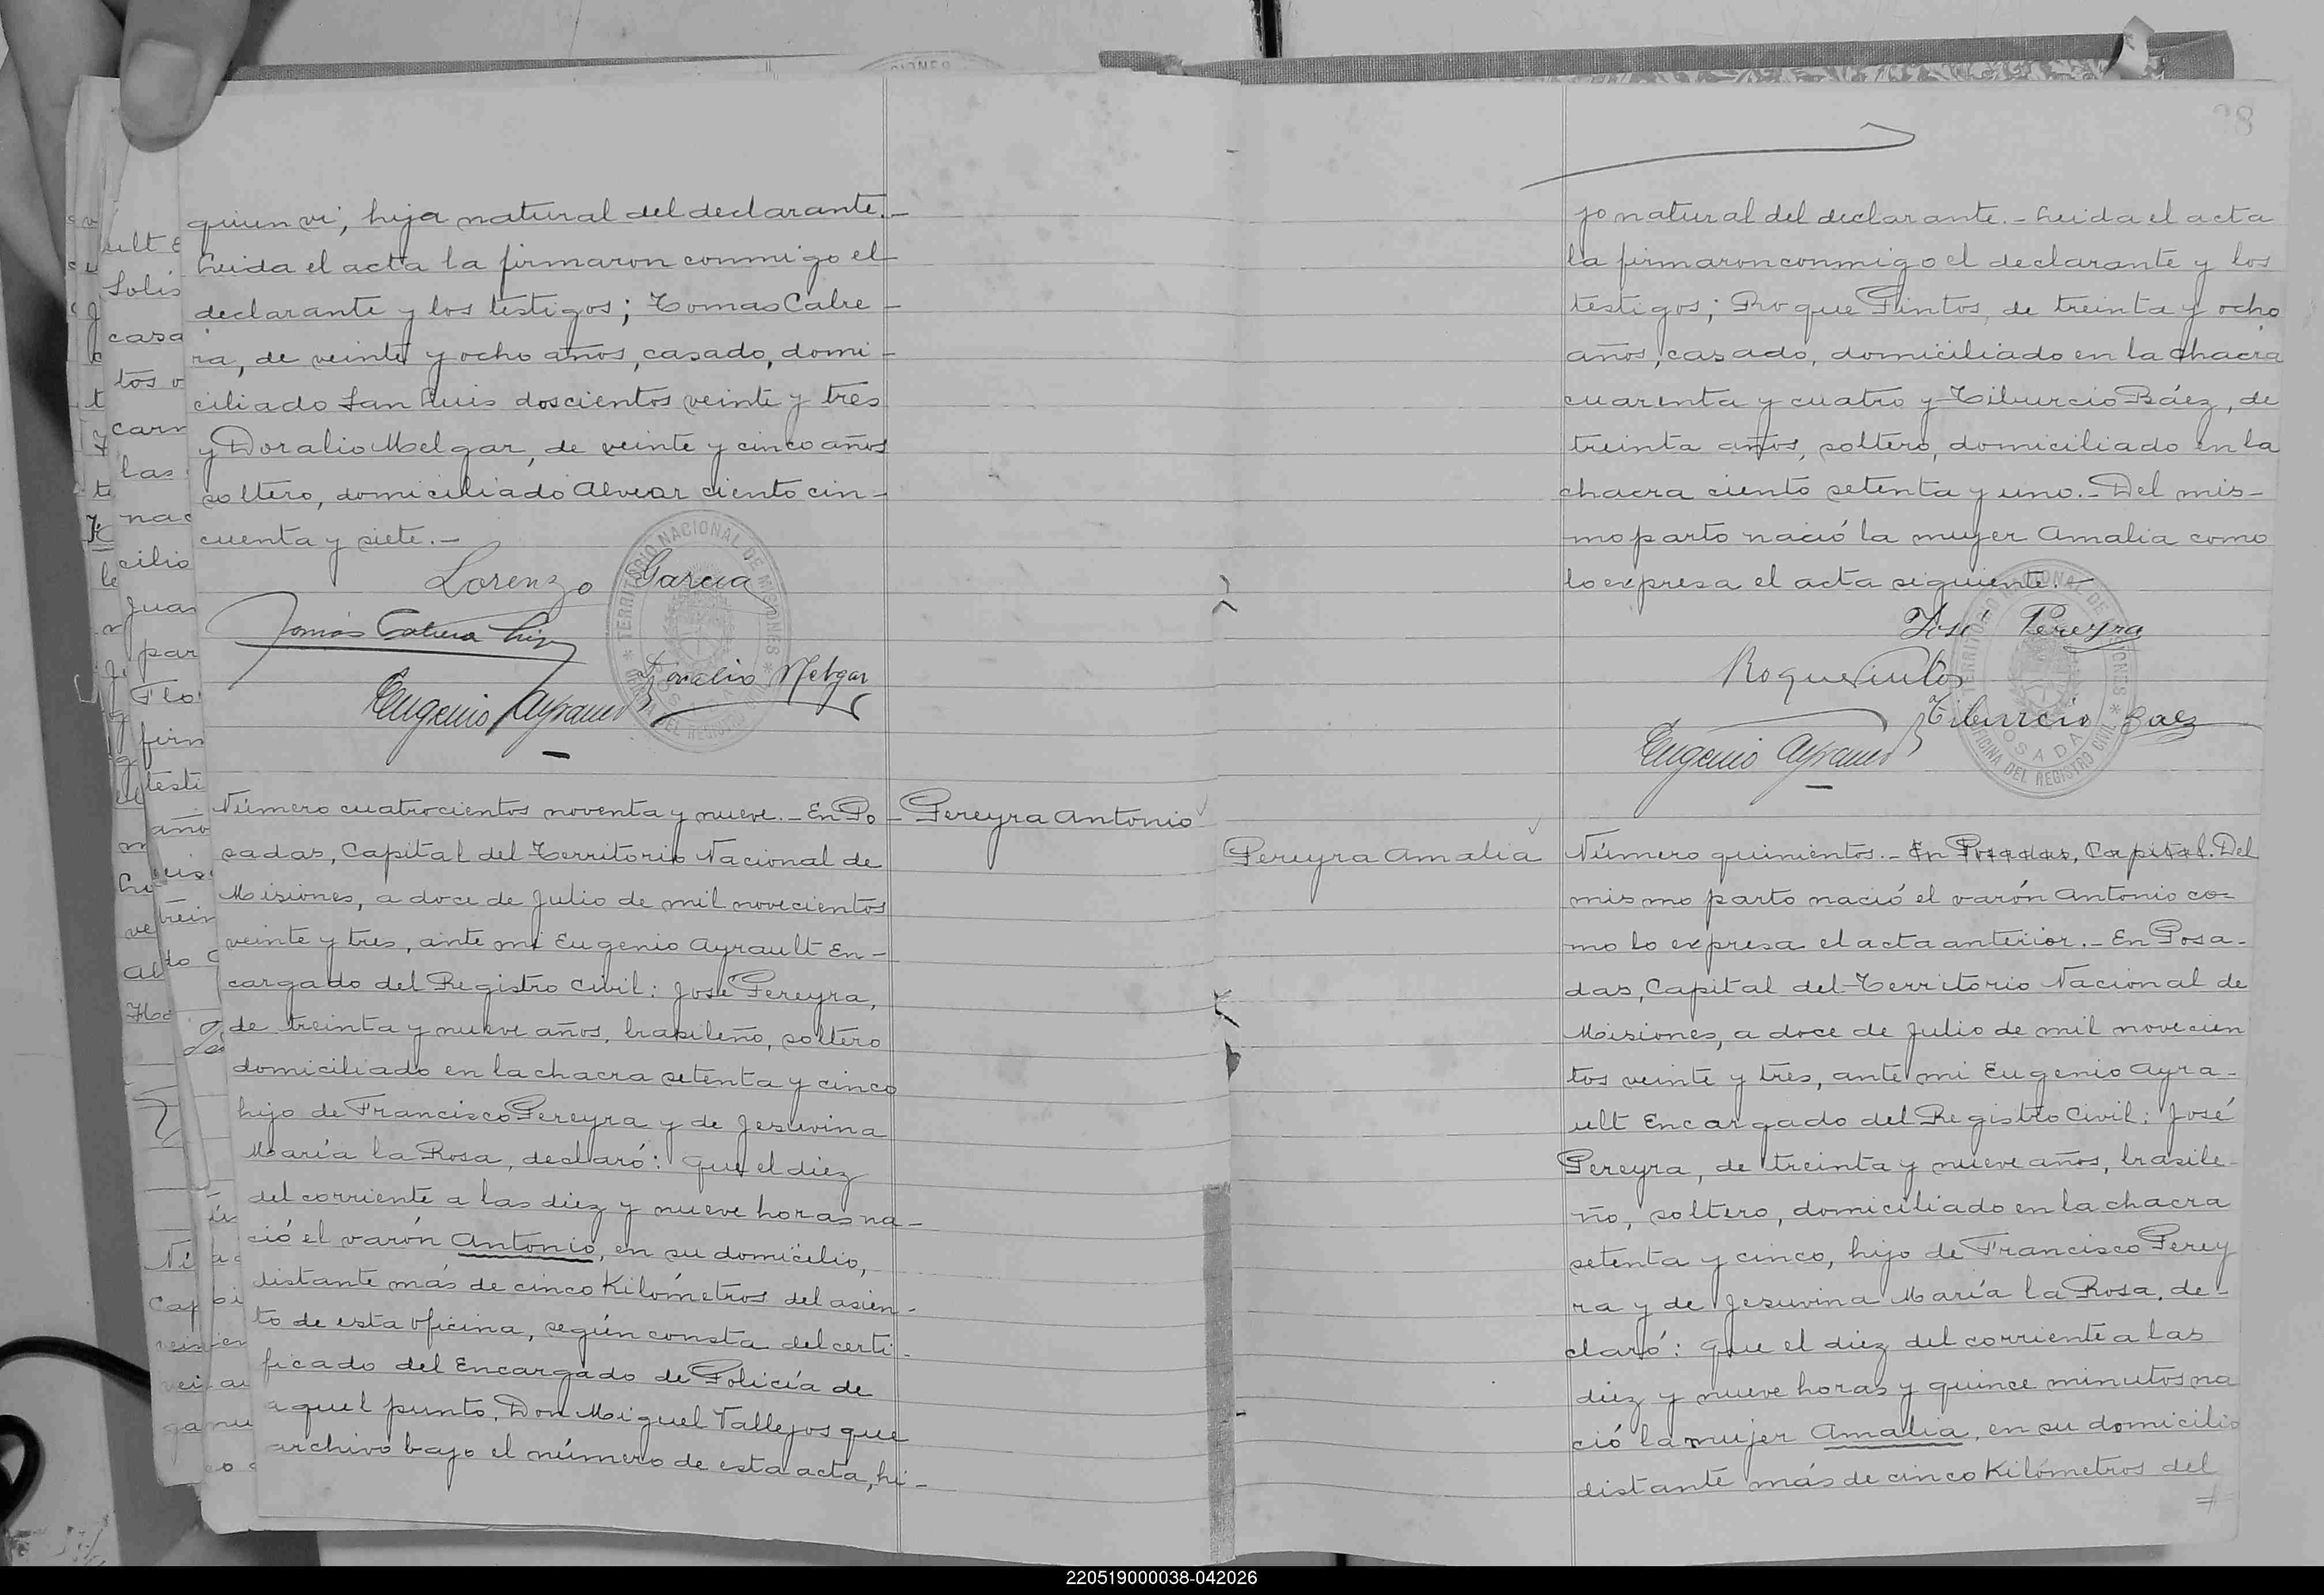 quien vi, hija natural del declarante.-
Leida el acta la firmaron conmigo el
declarante y los testigos; Tomas Cabre-
ra, de veinte y ocho años, casado, domi-
ciliado San Luis doscientos veinte y tres
y Doralio Melgar, de veinte y cinco años
soltero, domiciliado Alvear ciento cin-
cuenta y siete.-
Lorenzo Garcia
Tomás Cabrera hijo
Doralio Melgar
Eugenio Ayrault
TERRITORIO NACIONAL DE MISIONES
Número cuatrocientos noventa y nueve.- En Po-
Pereyra Antonio
sadas, Capital del Territorio Nacional de
Misiones, a doce de Julio de mil novecientos
veinte y tres, ante mi Eugenio Ayrault En-
cargado del Registro Civil: José Pereyra,
de treinta y nueve años, brasileño, soltero
domiciliado en la chacra setenta y cinco
hijo de Francisco Pereyra y de Jesuvina
María la Rosa, declaró: Que el diez
del corriente a las diez y nueve horas na-
ció el varón Antonio, en su domicilio,
distante más de cinco Kilómetros del asien-
to de esta oficina, según consta del certi-
ficado del Encargado de Policía de
aquel punto, Don Miguel Vallejos que
archivo bajo el número de esta acta, hi-
jo natural del declarante.- Leida el acta
la firmaron conmigo el declarante y los
testigos; Roque Pintos, de treinta y ocho
años, casado, domiciliado en la chacra
cuarenta y cuatro y Tiburcio Báez, de
treinta años, soltero, domiciliado en la
chacra ciento setenta y uno.- Del mis-
mo parto nació la mujer Amalia como
lo expresa el acta siguiente.-
José Pereyra
Roque Pintos
Tiburcio Baez
Eugenio Ayrault
TERRITORIO NACIONAL DE MISIONES
OFICINA DEL REGISTRO CIVIL
POSADAS
Pereyra Amalia
Número quinientos.- En Posadas, Capital. Del
mismo parto nació el varón Antonio co-
mo lo expresa el acta anterior.- En Posa-
das, Capital del Territorio Nacional de
Misiones, a doce de Julio de mil novecien
tos veinte y tres, ante mi Eugenio Ayra-
ult Encargado del Registro Civil: José
Pereyra, de treinta y nueve años, brasile-
ño, soltero, domiciliado en la chacra
setenta y cinco, hijo de Francisco Perey
ra y de Jesuvina María la Rosa, de-
claró: Que el diez del corriente a las
diez y nueve horas y quince minutos na
ció la mujer Amalia, en su domicilio
distante más de cinco Kilómetros del
220519000038-042026